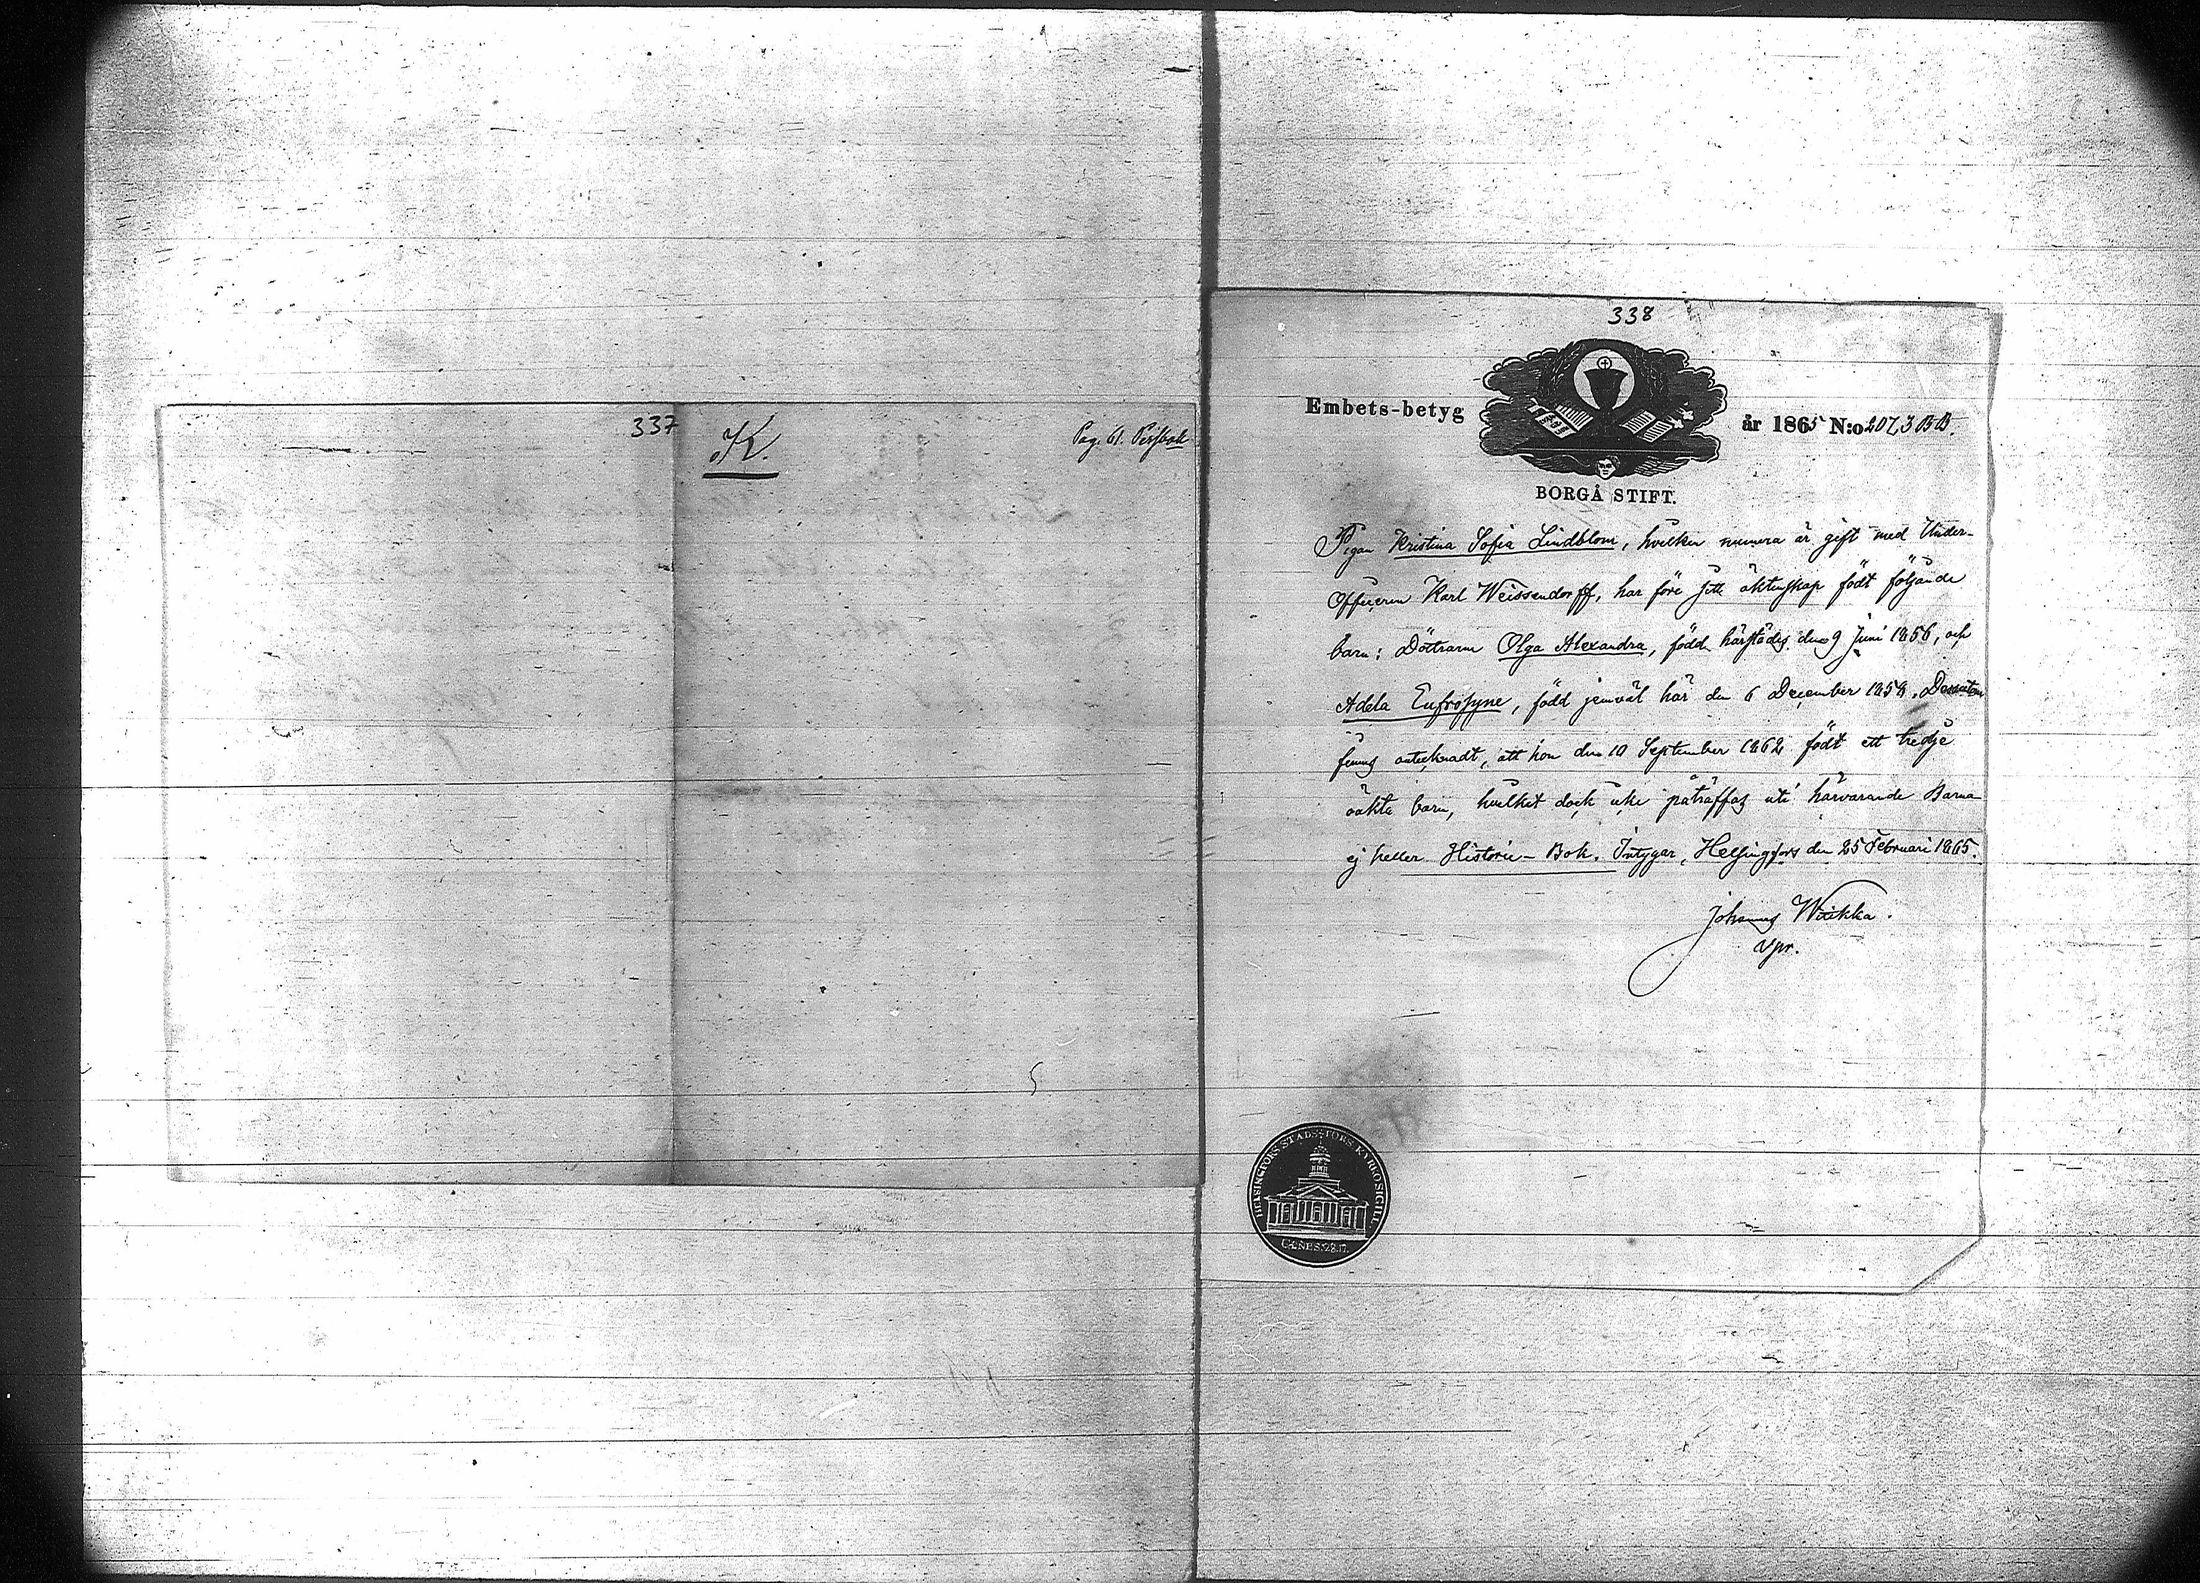 337
K.
Pag. 61.
338
Embets-betyg
år 1865 N:o 207,3 BB.
BORGÅ STIFT.
Pigan Kristina Sofia Lindblom, hvilken numera är gift med Under-
Officeren Karl Weissendorff, har före sitt äktenskap födt följande
barn: Döttrarne Olga Alexandra, född härstädes den 9 Juni 1856, och
Adela Eufrosyne, född jemväl här den 6 December 1858. Dessutom
finns antecknadt, att hon den 10 September 1862 födt ett tredje
oäkta barn, hvilket dock icke påträffas uti härvarande Barna-
ej heller Historie-Bok. Intygar, Helsingfors den 25 Februari 1865.
Johannes Wiikka.
Vpr.
HELSINGFORS STADS-FÖRS. KYRKO SIGILL
GENES. 28.17.